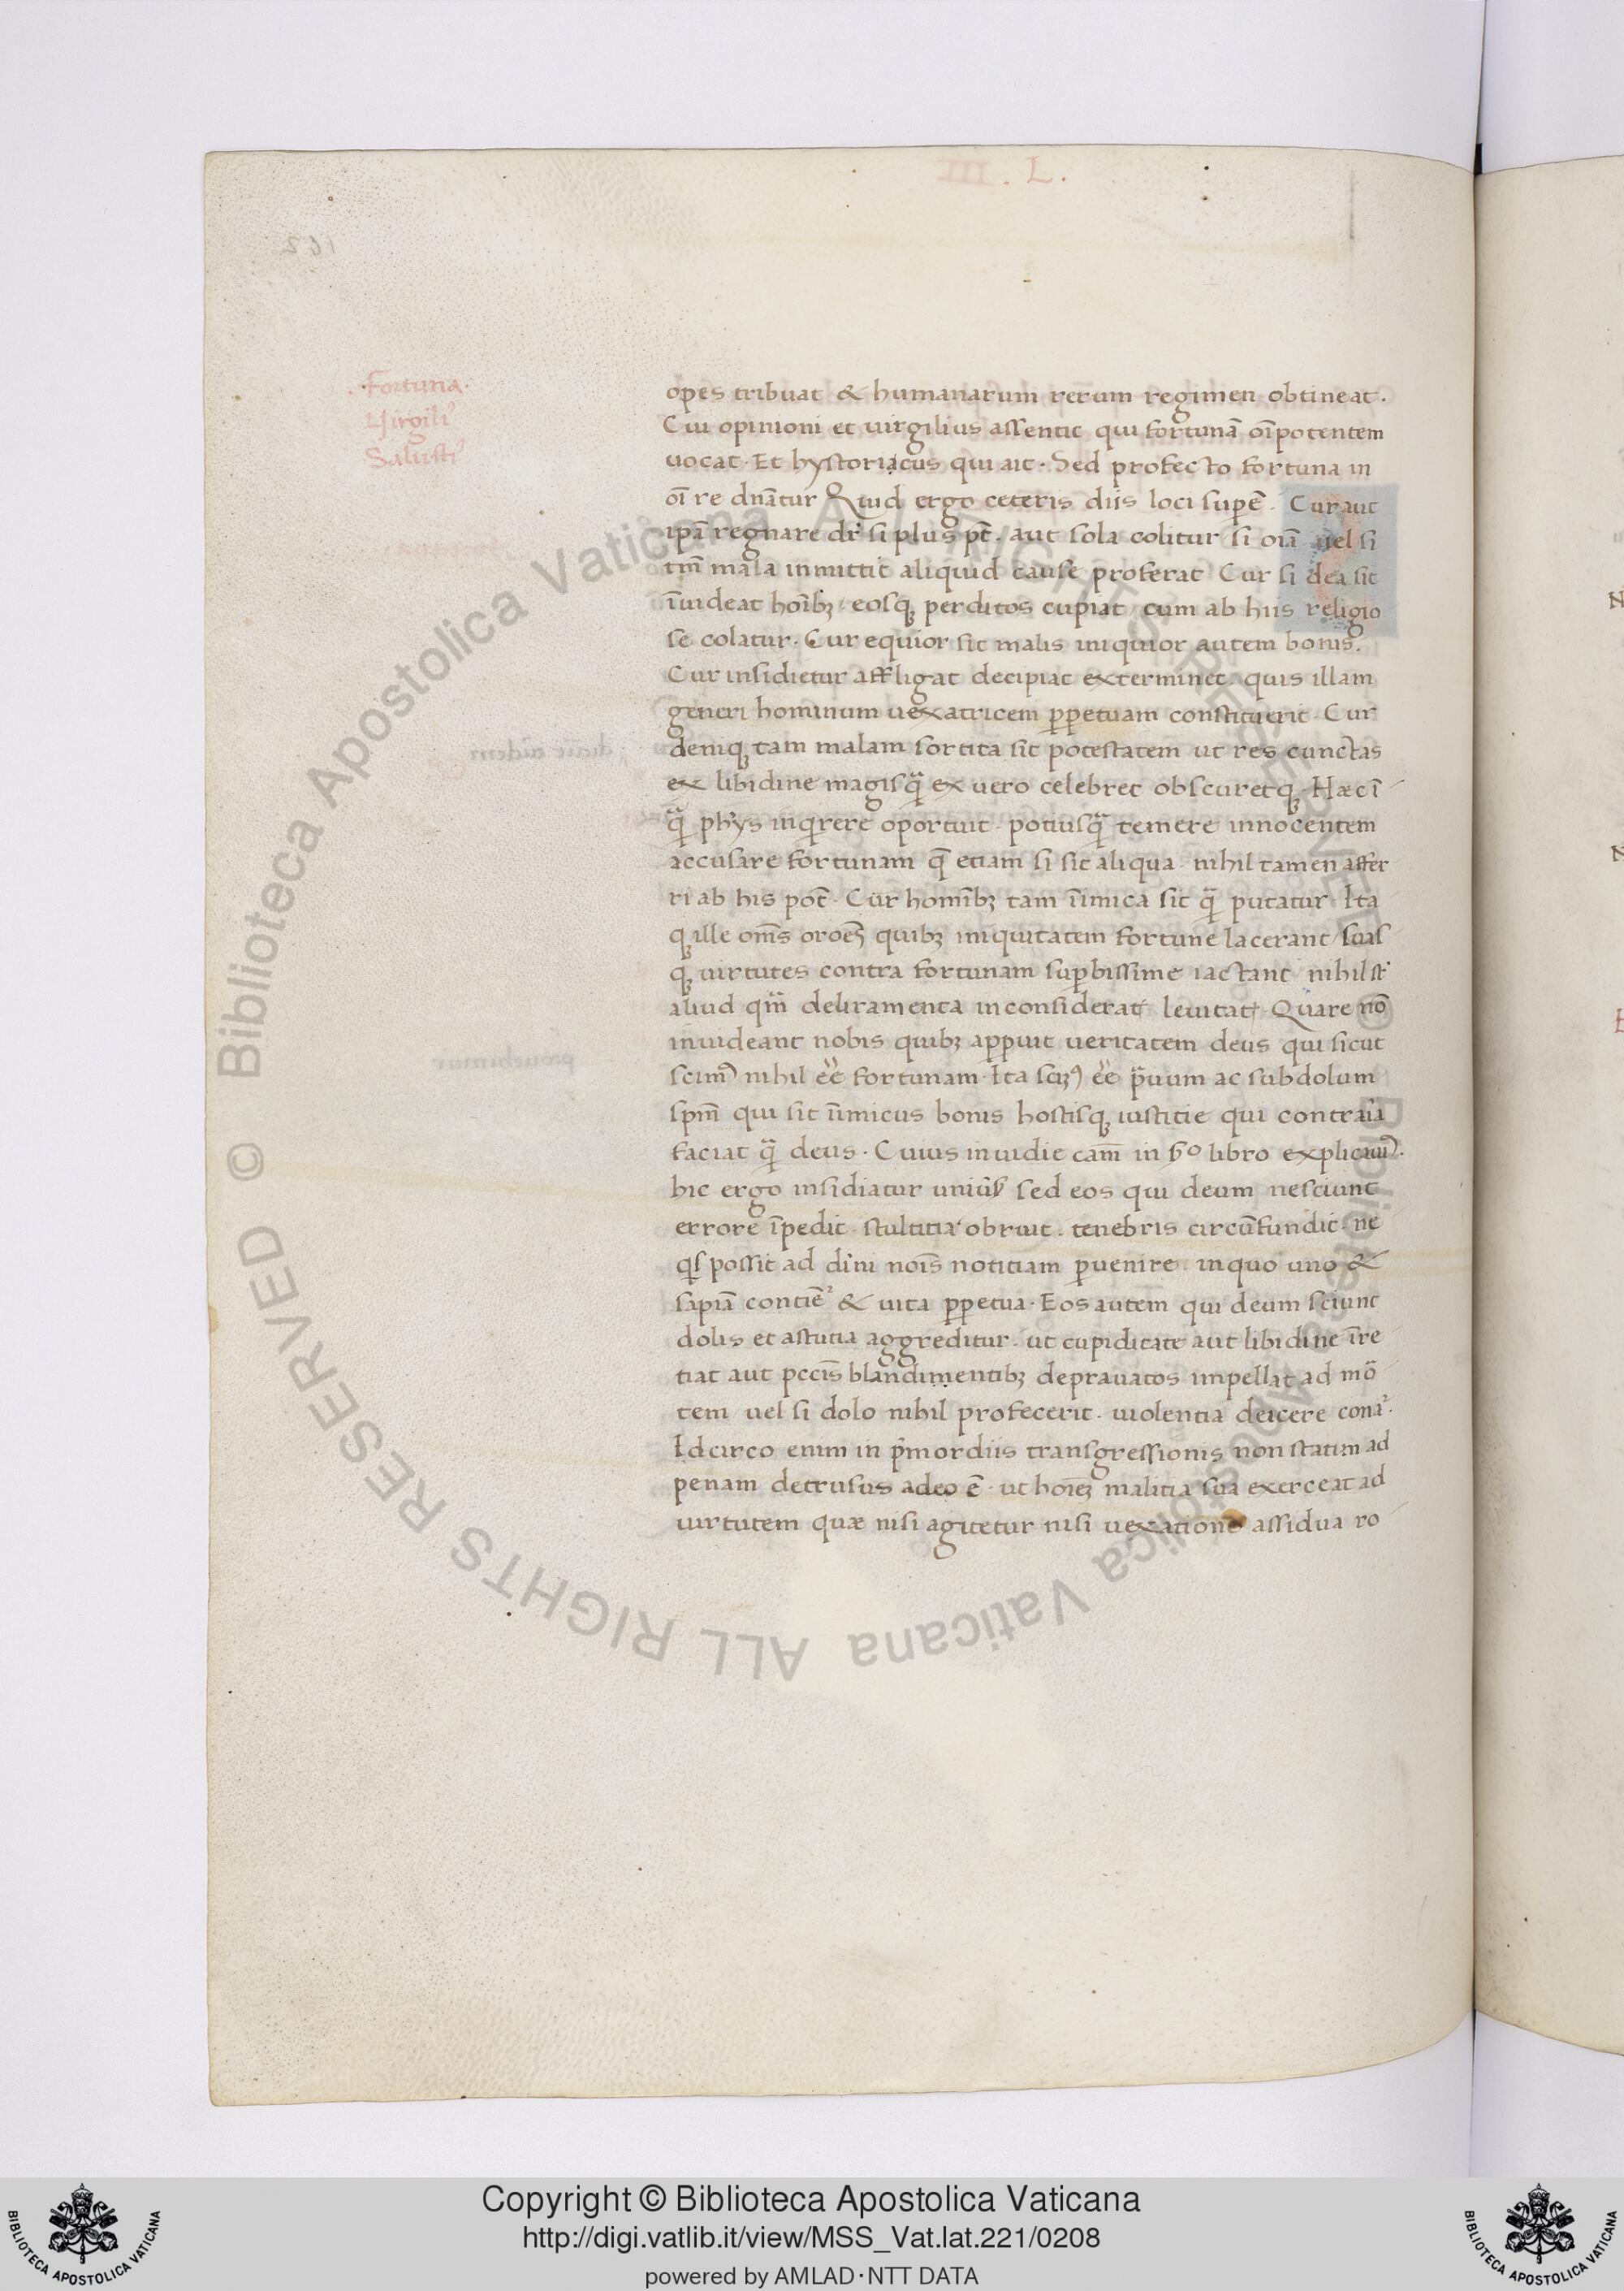 III . L .
·Fortuna·
Virgiliꝰ
Salustiꝰ
opes tribuat & humanarum rerum regimen obtineat .
Cui opinioni et uirgilius assentit qui fortunā oīpotentem
uocat · Et hystoriacus qui ait · Sed profecto fortuna in
oī re dn̄atur Quid ergo ceteris diis loci supē . Cur aut
ip̄a regnare dr̄ si plus pt̄ . aut sola colitur si oīa uel si
tm̄ mala inmittit aliquid cause proferat Cur si dea sit
īuideat hoībꝫ eosqꝫ perditos cupiat cum ab hiis religio
se colatur · Cur equior sit malis iniquior autem bonis .
Cur insidietur affligat decipiat exterminet . quis illam
generi hominum uexatricem ꝑpetuam constituerit · Cur
deniqꝫ tam malam sortita sit potestatem ut res cunctas
ex libidine magisq̄ ex uero celebret obscuretqꝫ · Hæc ī
q̄ ph̄ys inqrere oportuit · potiusq̄ temere innocentem
accusare fortunam q̄ etiam si sit aliqua · nihil tamen affer
ri ab his pot̄ · Cur homībꝫ tam īimica sit q̄ putatur · Ita
qꝫ ille om̄s oroēs quibꝫ iniquitatem fortune lacerant suas
qꝫ uirtutes contra fortunam suꝑbissime iactant nihil st̄
aliud qm̄ deliramenta inconsiderat leuitat Quare nō
inuideant nobis quibꝫ apꝑuit ueritatem deus qui sicut
scimꝰ nihil eē fortunam · Ita scimꝰ eē prauum ac subdolum
spm̄ qui sit īimicus bonis hostisqꝫ iustitie qui contraria
faciat q̄ deus · Cuius inuidie cam̄ in ẜo libro explicauimꝰ .
hic ergo insidiatur uniūs sed eos qui deum nesciunt
errore īpedit · stultitia obruit . tenebris circūfundit · ne
qs possit ad dīni noīs notitiam ꝑuenire . in quo uno &
sapiā contiē & uita ꝑpetua · Eos autem qui deum sciunt
dolis et astutia aggreditur . ut cupiditate aut libidine īre
tiat aut pcc̄is blandimentibꝫ deprauatos impellat ad mō
tem uel si dolo nihil profecerit . uiolentia deicere conāꝰ .
Idcirco enim in pͥmordiis transgressionis non statim ad
penam detrusus adeo ē · ut hoīeꝫ malitia sua exerceat ad
uirtutem quæ nisi agitetur nisi uexatione assidua ro
Biblioteca Apostolica Vaticana ALL RIGHTS RESERVED ©
Copyright © Biblioteca Apostolica Vaticana
http://digi.vatlib.it/view/MSS_Vat.lat.221/0208
powered by AMLAD·NTT DATA
BIBLIOTECA APOSTOLICA VATICANA
BIBLIOTECA APOSTOLICA VATICANA